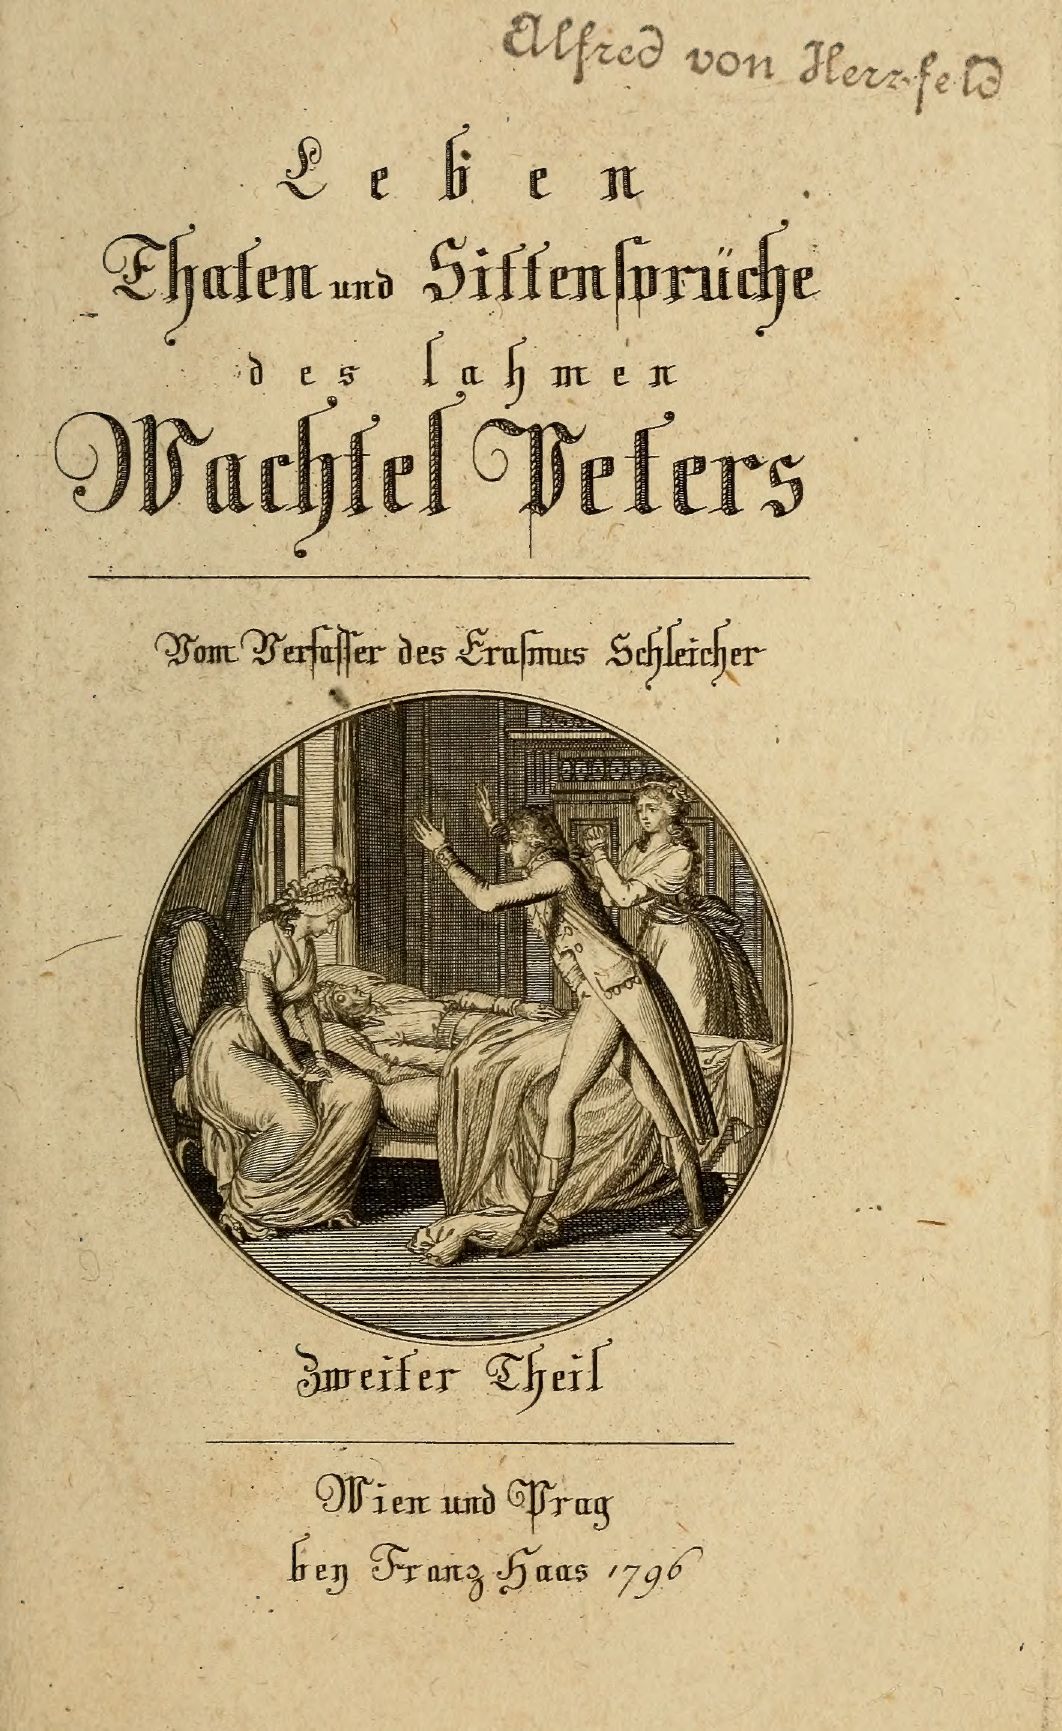 Alfred von Herzfeld
Leben
Thaten und Sittensprüche
des lahmen
Wachtel Peters
Vom Verfasser des Erasmus Schleicher
Zweiter Theil
Wien und Prag
bey Franz Haas 1796